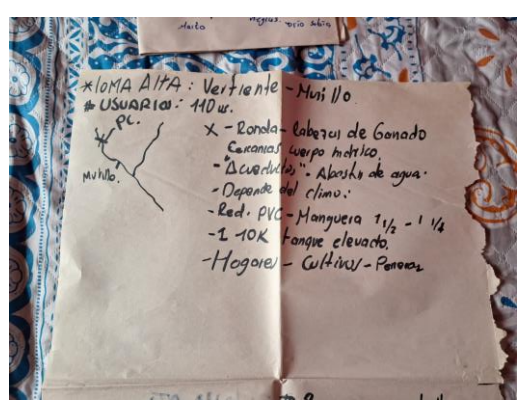 Harto negras
* lOMA AltA: Vertiente - Murillo.
# USUARIOS: 110 us.
PC.
Murillo.
X - Ronda - Cabezas de Ganado
Cercanias cuerpo hidrico.
- "Acueductos" - Abastc de agua.
- Depende del clima:
- Red. PVC - Manguera 1 1/2 - 1 1/4
- 1 10K tanque elevado.
- Hogares - Cultivos -